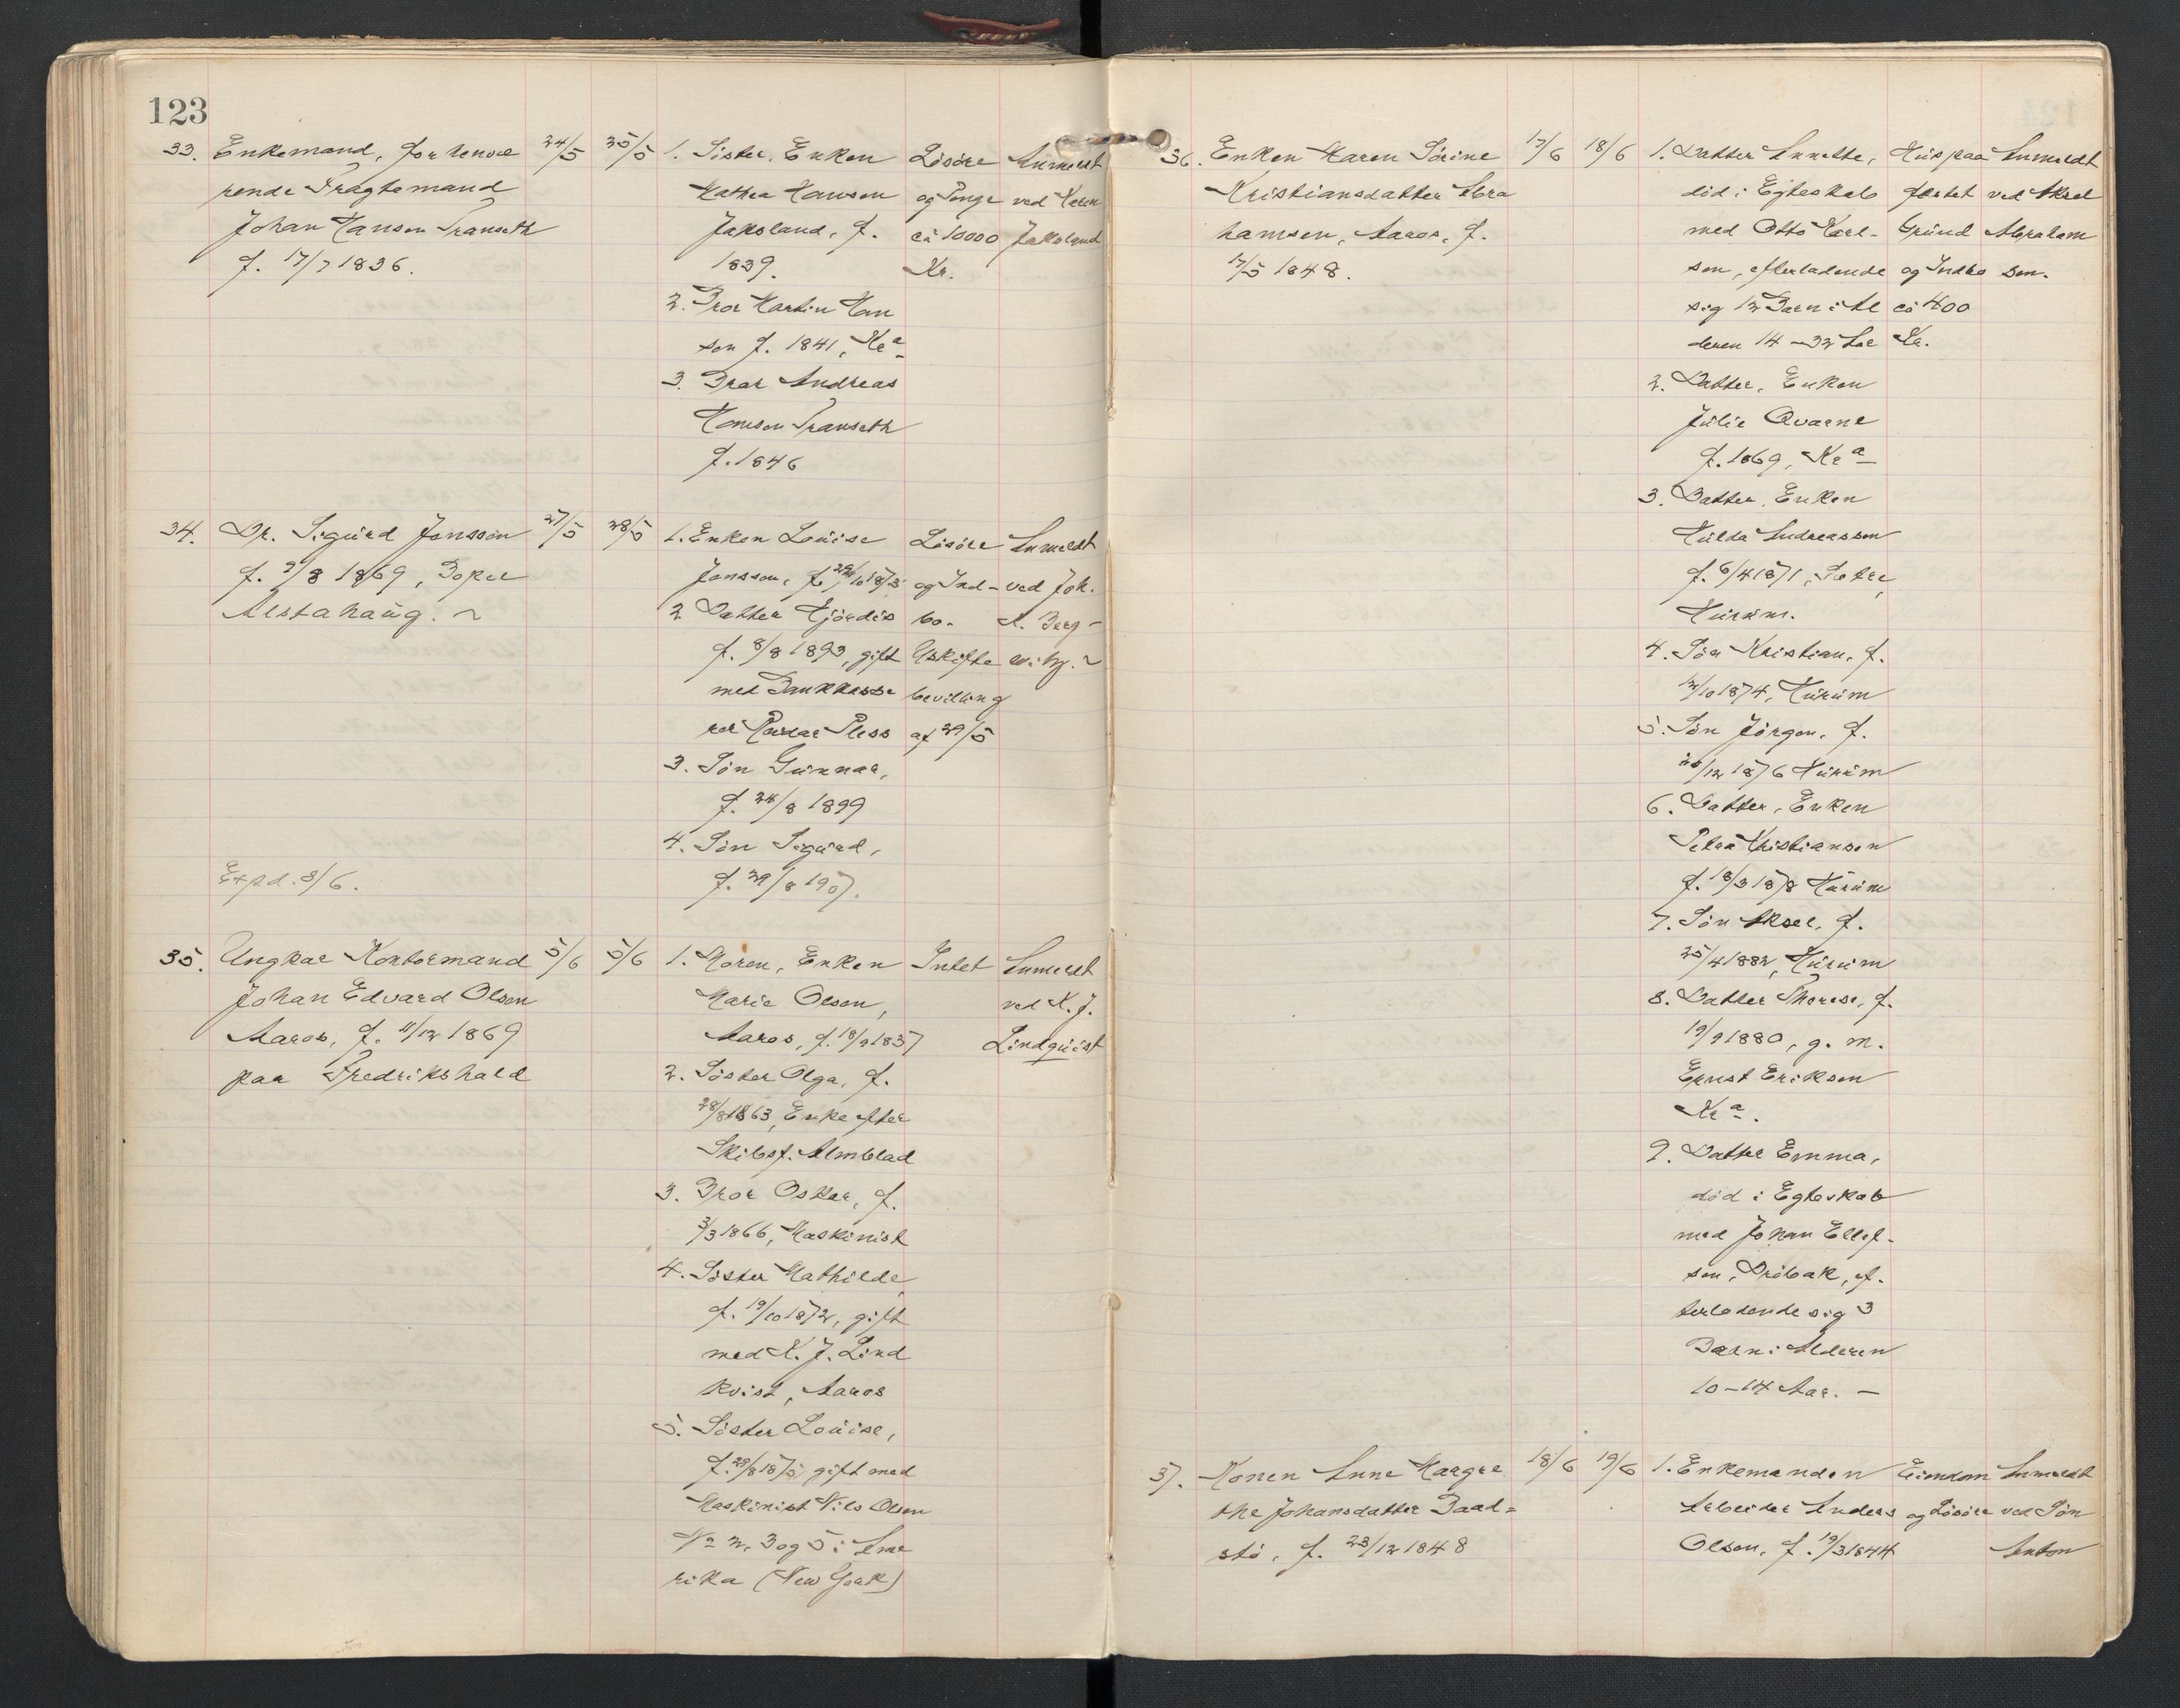 123
33. Enkemand, forhenvæ
rende Fragtemand
Johan Hansen Transeth
f. 17/7 1836.
24/5 25/5
1. Sister, Enken
Mathea Hansen
Jaksland, f.
1839.
2. Bror Martin Han
sen f. 1841, Kra
3. Bror Andreas
Hansen Transeth
f. 1846
Lösöre
og Penge
ca 10000
Kr.
Anmeldt
ved Karen
Jaksland
34. Dr. Sigurd Jonsson
f. 9/8 1869, Bopæl
Alstahaug.
Expd. 8/6.
27/5 28/5
1. Enken Louise
Jonsson, f. 29/10 1873
2. Datter Hjördis
f. 8/8 1893, gift
med Bankkasse
rer Pless
3. Sön Gunnar,
f. 24/8 1899
4. Sön Sigurd,
f. 29/8 1907.
Lösöre
og Ind-
bo.
Uskifte
bevilling
af 29/5
Anmeldt
ved Joh.
K. Berg-
witz.
35. Ungkar Kontormand
Johan Edvard Olsen
Aaros, f. 11/12 1869
paa Fredrikshald
5/6 5/6
1. Moren, Enken
Marie Olsen,
Aaros, f. 18/9 1837
2. Söster Olga, f.
28/8 1863, Enke efter
Skibsf. Almblad
3. Bror Oskar, f.
3/3 1866, Maskinist
4. Söster Mathilde,
f. 19/10 1872, gift
med K. J. Lind
kvist, Aaros
5. Söster Louise,
f. 29/8 1875 gift med
Maskinist Nils Olsen
No 2, 3 og 5 i Ame
rika (New York)
Intet
Anmeldt
ved K. J.
Lindquist
36. Enken Karen Sörine
Kristiansdatter Abra
hamsen, Aaros, f.
17/5 1848.
17/6 18/6
1. Datter Annette,
död i Egteskab
med Otto Karl-
sen, efterladende
sig 12 Barn i Al
deren 14 - 32 Aar
2. Datter, Enken
Julie Qvarne
f. 1869, Kra
3. Datter, Enken
Hulda Andreassen
f. 6/4 1871, Sætre,
Hurum.
4. Sön Kristian, f.
12/10 1874, Hurum
5. Sön Jörgen, f.
/12 1876 Hurum
6. Datter, Enken
Petra Kristiansen
f. 18/3 1878 Hurum
7. Sön Aksel, f.
25/4 1882, Hurum
8. Datter Therese, f.
19/9 1880, g. m.
Ernst Eriksen
Kra.
9. Datter Emma,
död i Egteskab
med Johan Ellef-
sen, Dröbak, ef-
terladende sig 3
Barn i Alderen
10-14 Aar. -
Hus paa
festet
Grund
og Indbo
ca 400
Kr.
Anmeldt
ved Aksel
Abraham
sen.
37. Konen Anne Margre
the Johansdatter Baad=
stö, f. 23/12 1848
18/6 19/6
1. Enkemanden
Arbeider Anders
Olsen, f. 19/3 1844
Eiendom
og Lösöre
Anmeldt
ved Sön
Anton